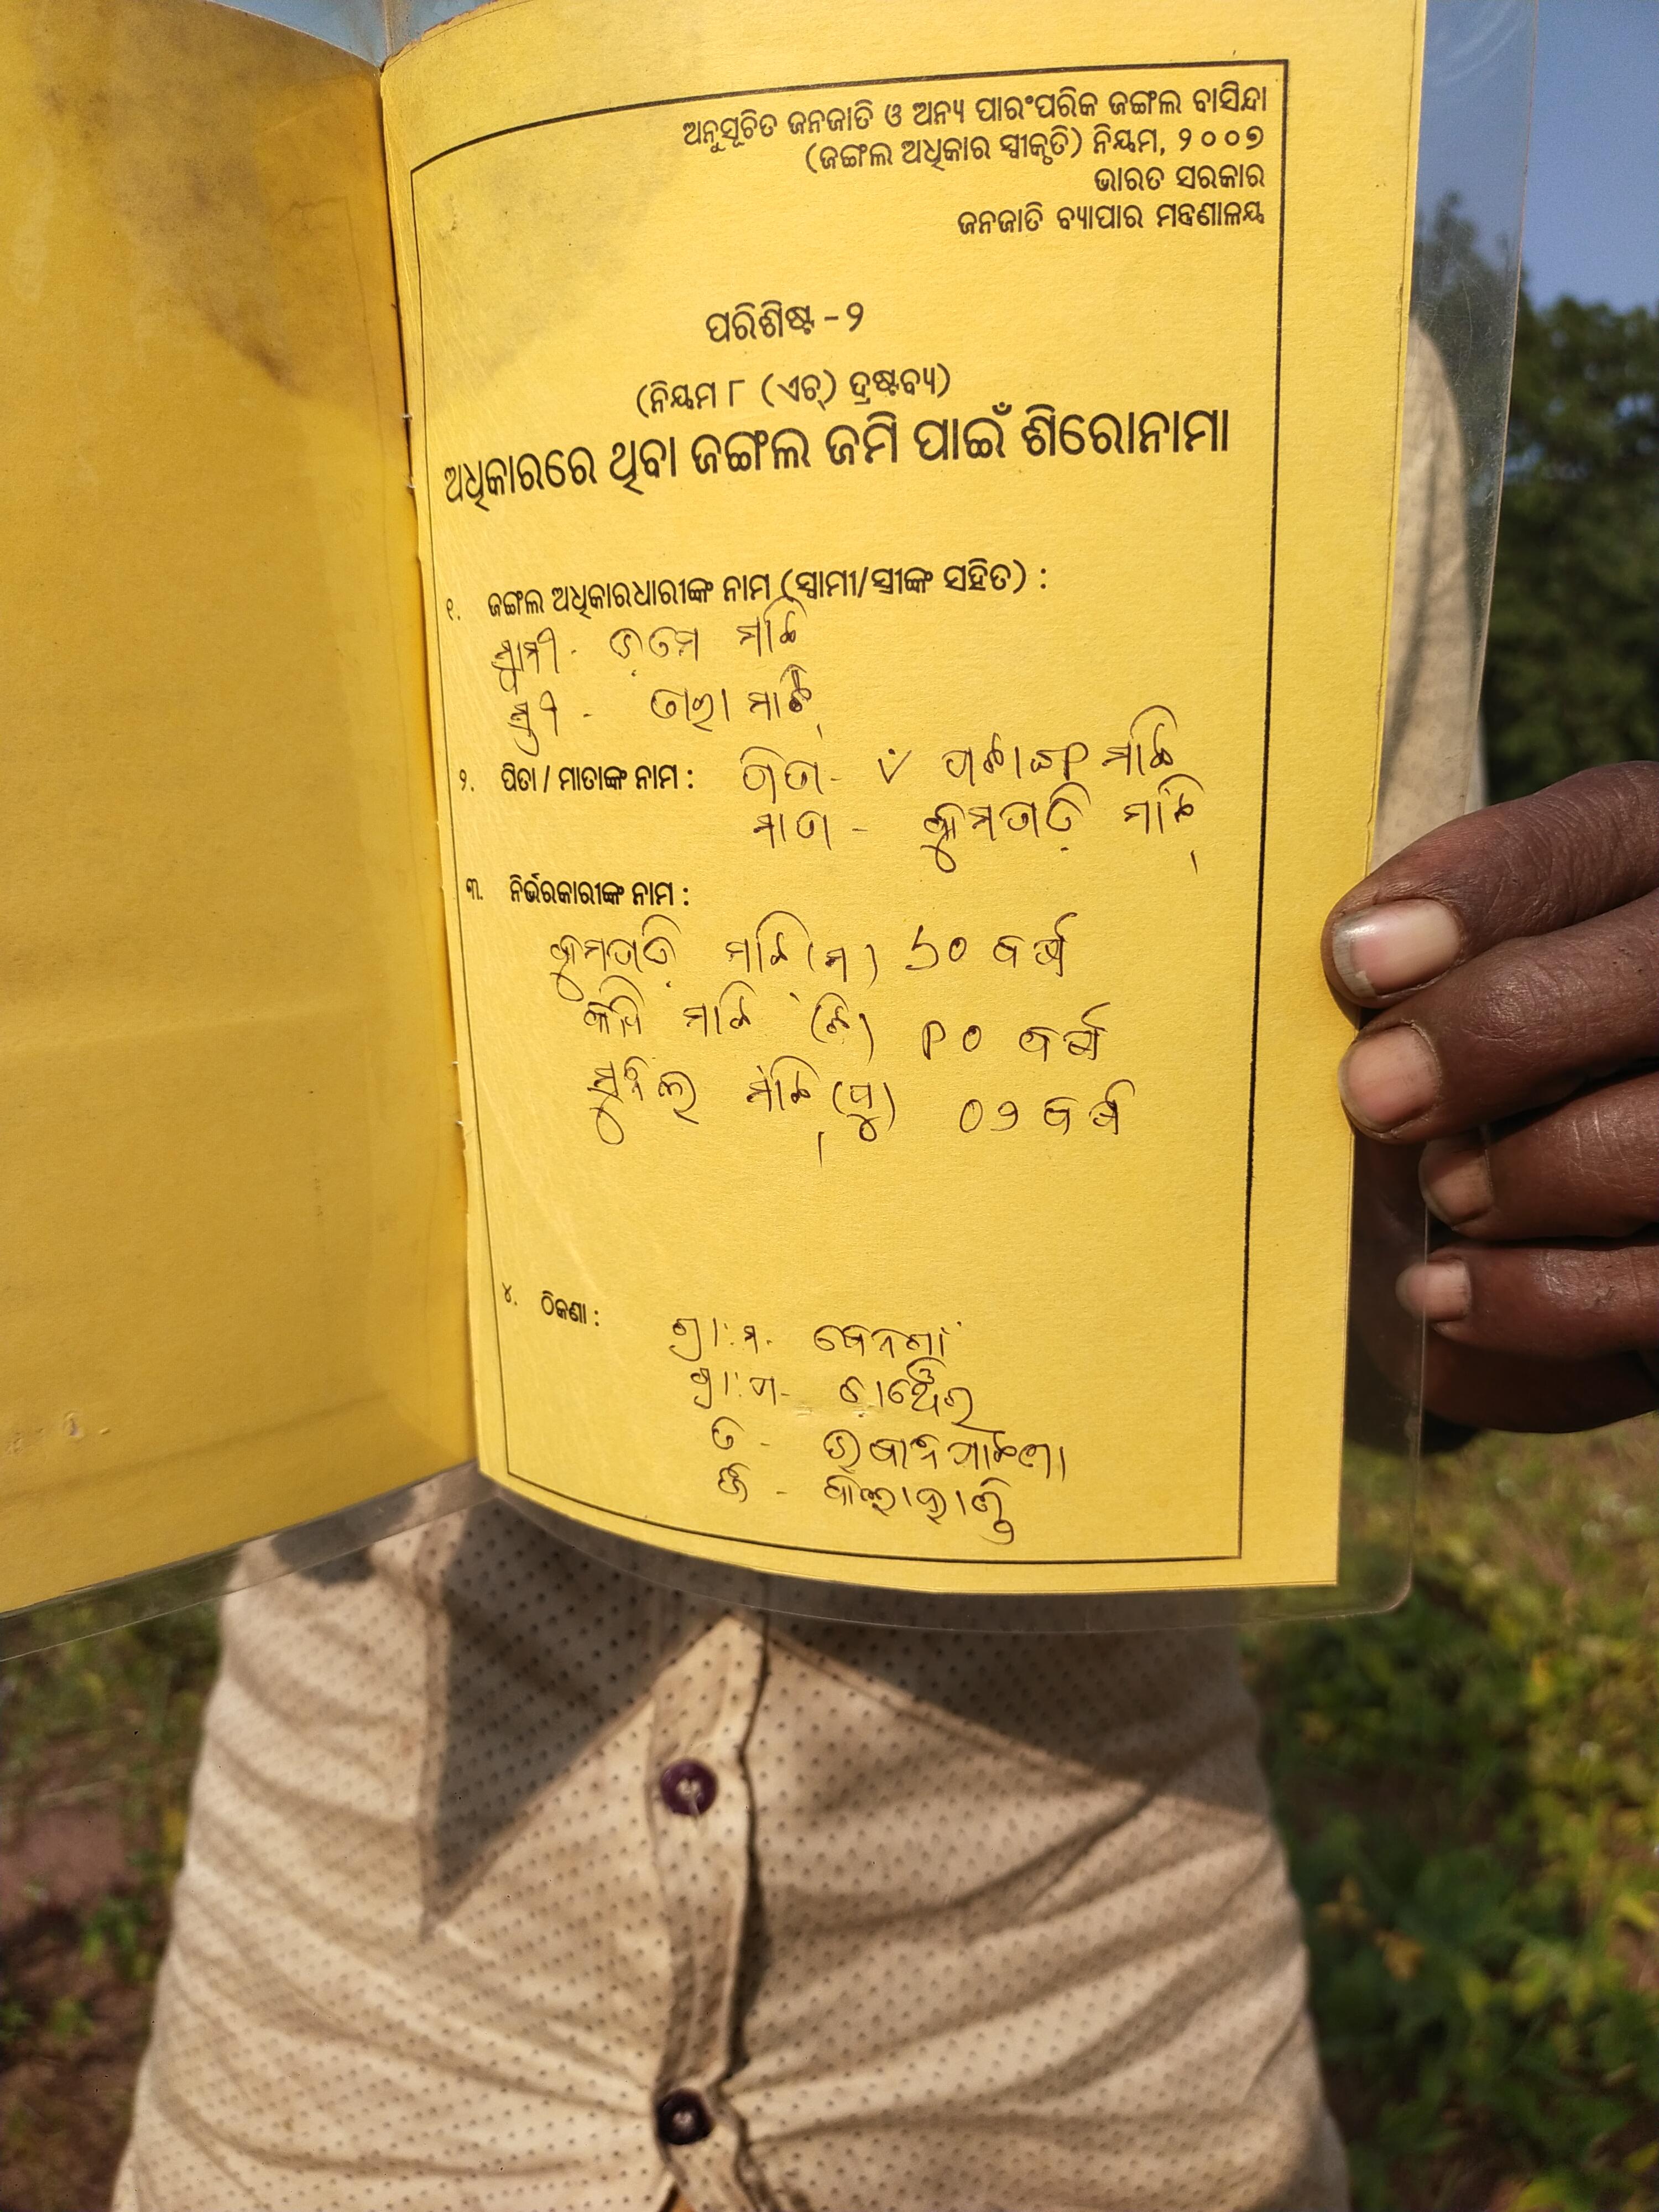 ଅନୁସୂଚିତ ଜନଜାତି ଓ ଅନ୍ୟ ପାରଂପରିକ ଜଙ୍ଗଲ ବାସିନ୍ଦା
(ଜଙ୍ଗଲ ଅଧିକାର ସ୍ୱୀକୃତି) ନିୟମ, ୨୦୦୭
ଭାରତ ସରକାର
ଜନଜାତି ବ୍ୟାପାର ମନ୍ତ୍ରଣାଳୟ
ପରିଶିଷ୍ଟ - ୨
(ନିୟମ ୮ (ଏଚ୍) ଦ୍ରଷ୍ଟବ୍ୟ)
ଅଧିକାରରେ ଥିବା ଜଙ୍ଗଲ ଜମି ପାଇଁ ଶିରୋନାମା
୧. ଜଙ୍ଗଲ ଅଧିକାରଧାରୀଙ୍କ ନାମ (ସ୍ୱାମୀ/ସ୍ତ୍ରୀଙ୍କ ସହିତ) :
ସ୍ୱାମୀ - ମାଝି
ସ୍ତ୍ରୀ - ତାରା ମାଝି
୨. ପିତା / ମାତାଙ୍କ ନାମ : ପିତା - ମାଝି
ମାତା - କୁମତାତି ମାଝି
୩. ନିର୍ଭରକାରୀଙ୍କ ନାମ :
କୁମତାତି ମାଝି (ମ) ୬୦ ବର୍ଷ
ମାଝି (ଝି) ୧୦ ବର୍ଷ
ସୁନିଲ ମାଝି (ପୁ) ୦୨ ବର୍ଷ
୪. ଠିକଣା :
ଗ୍ରା:ମ -
ଗ୍ରା:ପ -
ତ - ଭବାନିପାଟଣା
ଜି - କଳାହାଣ୍ଡି